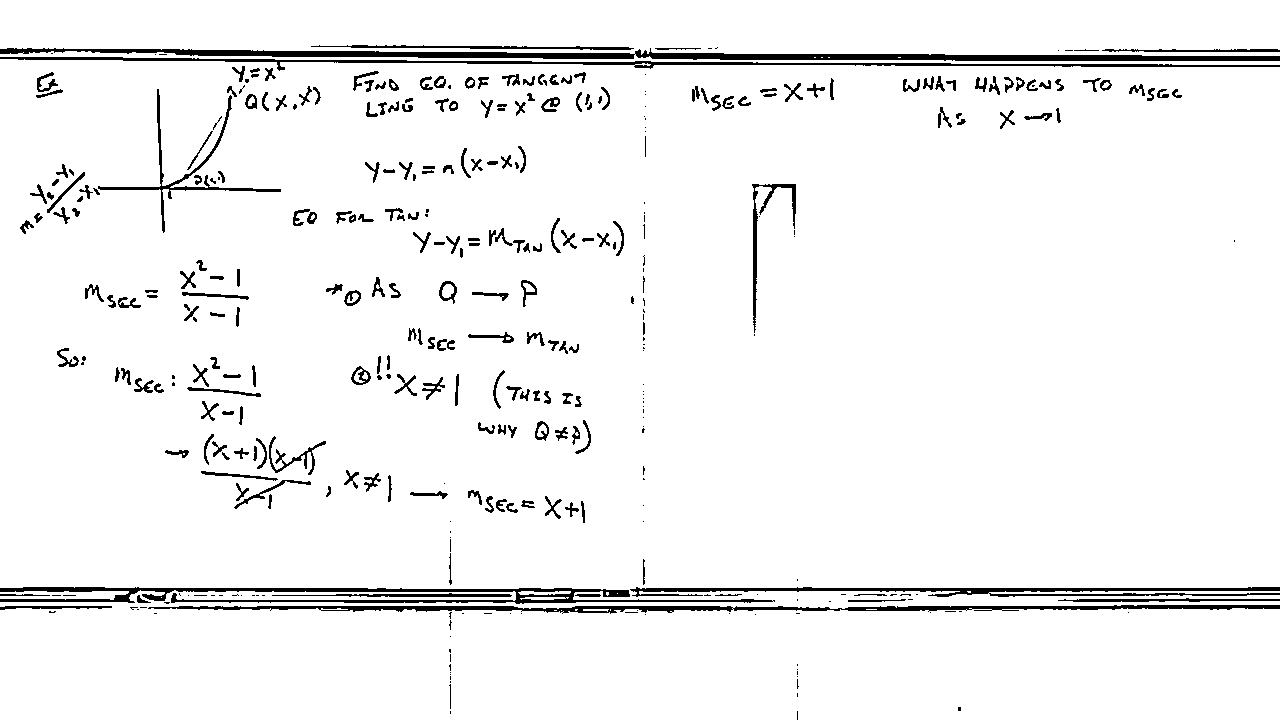 Ex
y = x²
Q(x, x²)
P(1,1)
1
m = y₂-y₁/x₂-x₁
FIND EQ. OF TANGENT
LINE TO y = x² @ (1,1)
y-y₁ = m(x-x₁)
EQ FOR TAN:
y-y₁ = m_TAN (x-x₁)
m_SEC = x²-1/x-1
* ① AS Q → P
m_SEC → m_TAN
So:
m_SEC: x²-1/x-1
② !! x≠1 (THIS IS
WHY Q≠P)
→ (x+1)(x-1)/x-1, x≠1 → m_SEC = x+1
m_SEC = x+1
WHAT HAPPENS TO m_SEC
AS x→1